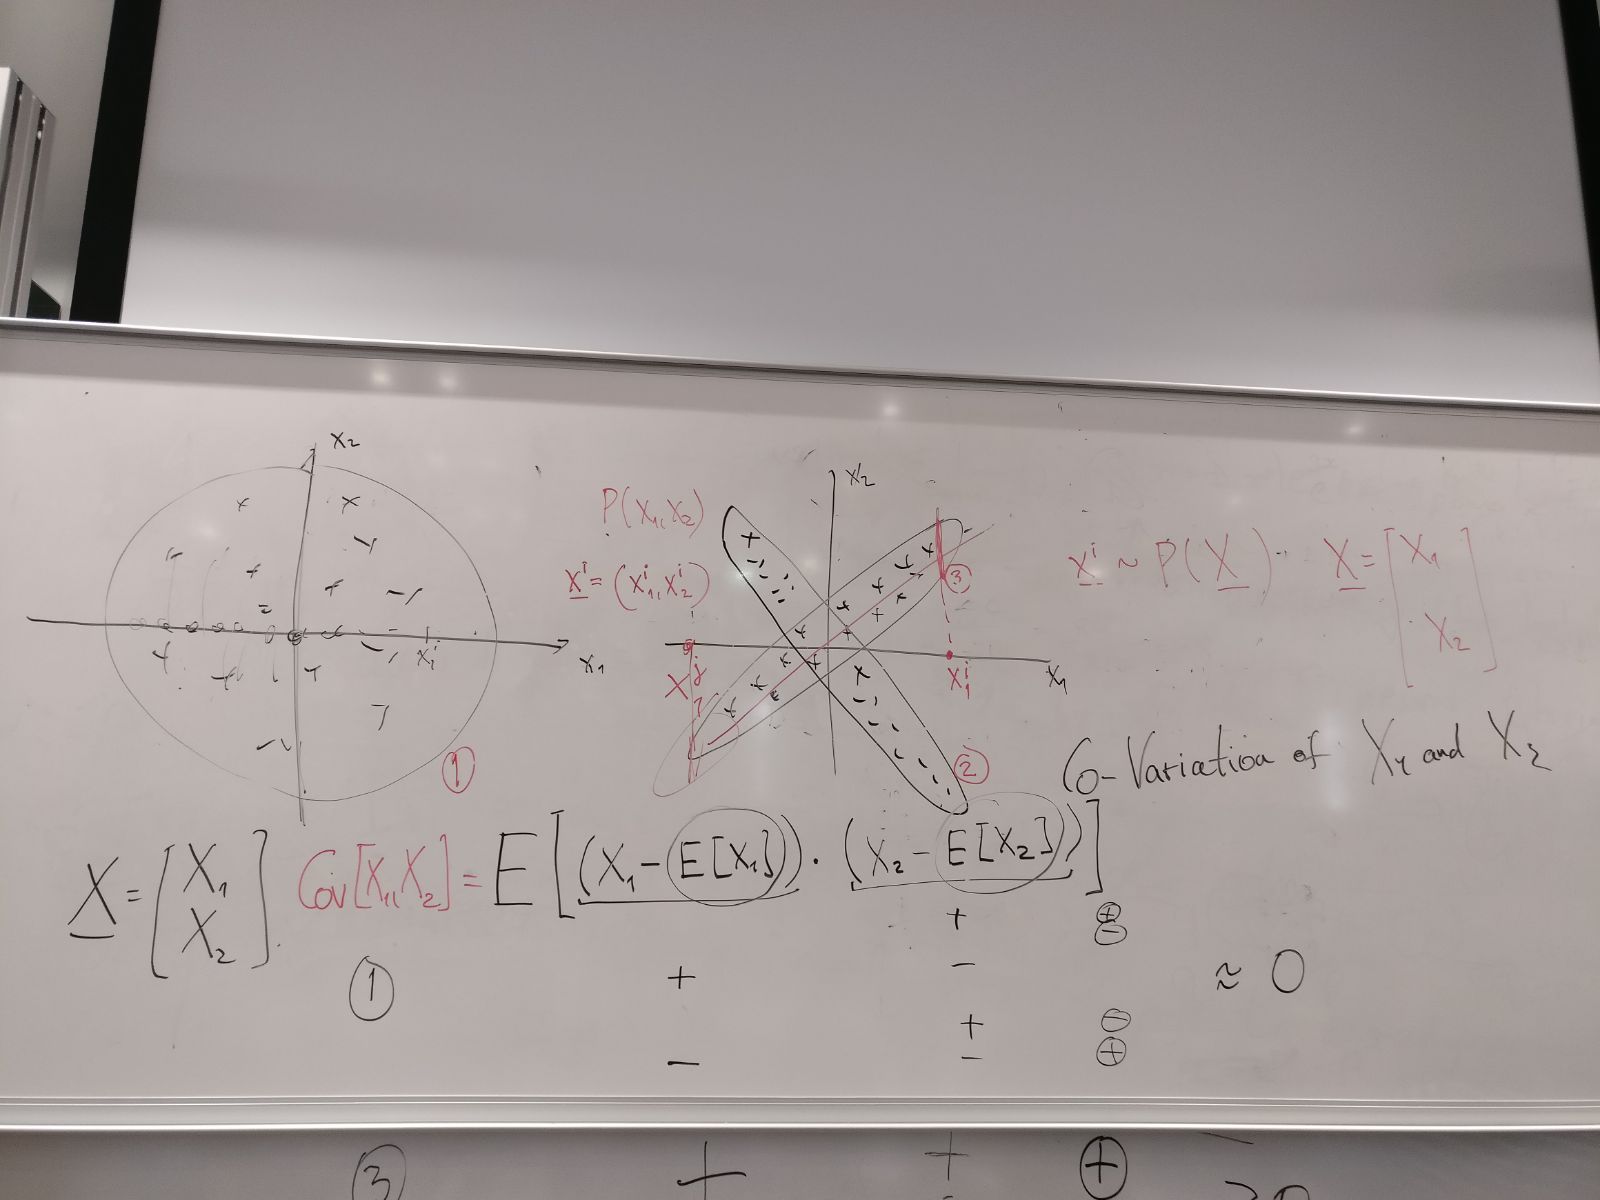 X₂
X₁
X₁ⁱ
①
X₂
P(X₁,X₂)
Xⁱ = (X₁ⁱ, X₂ⁱ)
③
X₁ʲ
X₁ⁱ
X₁
②
Xⁱ ~ P(X) X = [X₁
X₂]
Co-Variation of X₁ and X₂
X = [X₁
X₂]
Cov[X₁,X₂] = E[(X₁ - E[X₁]) · (X₂ - E[X₂])]
+ ⊕
⊖
① + - ≈ 0
+ ⊖
- - ⊕
③ + + ⊕